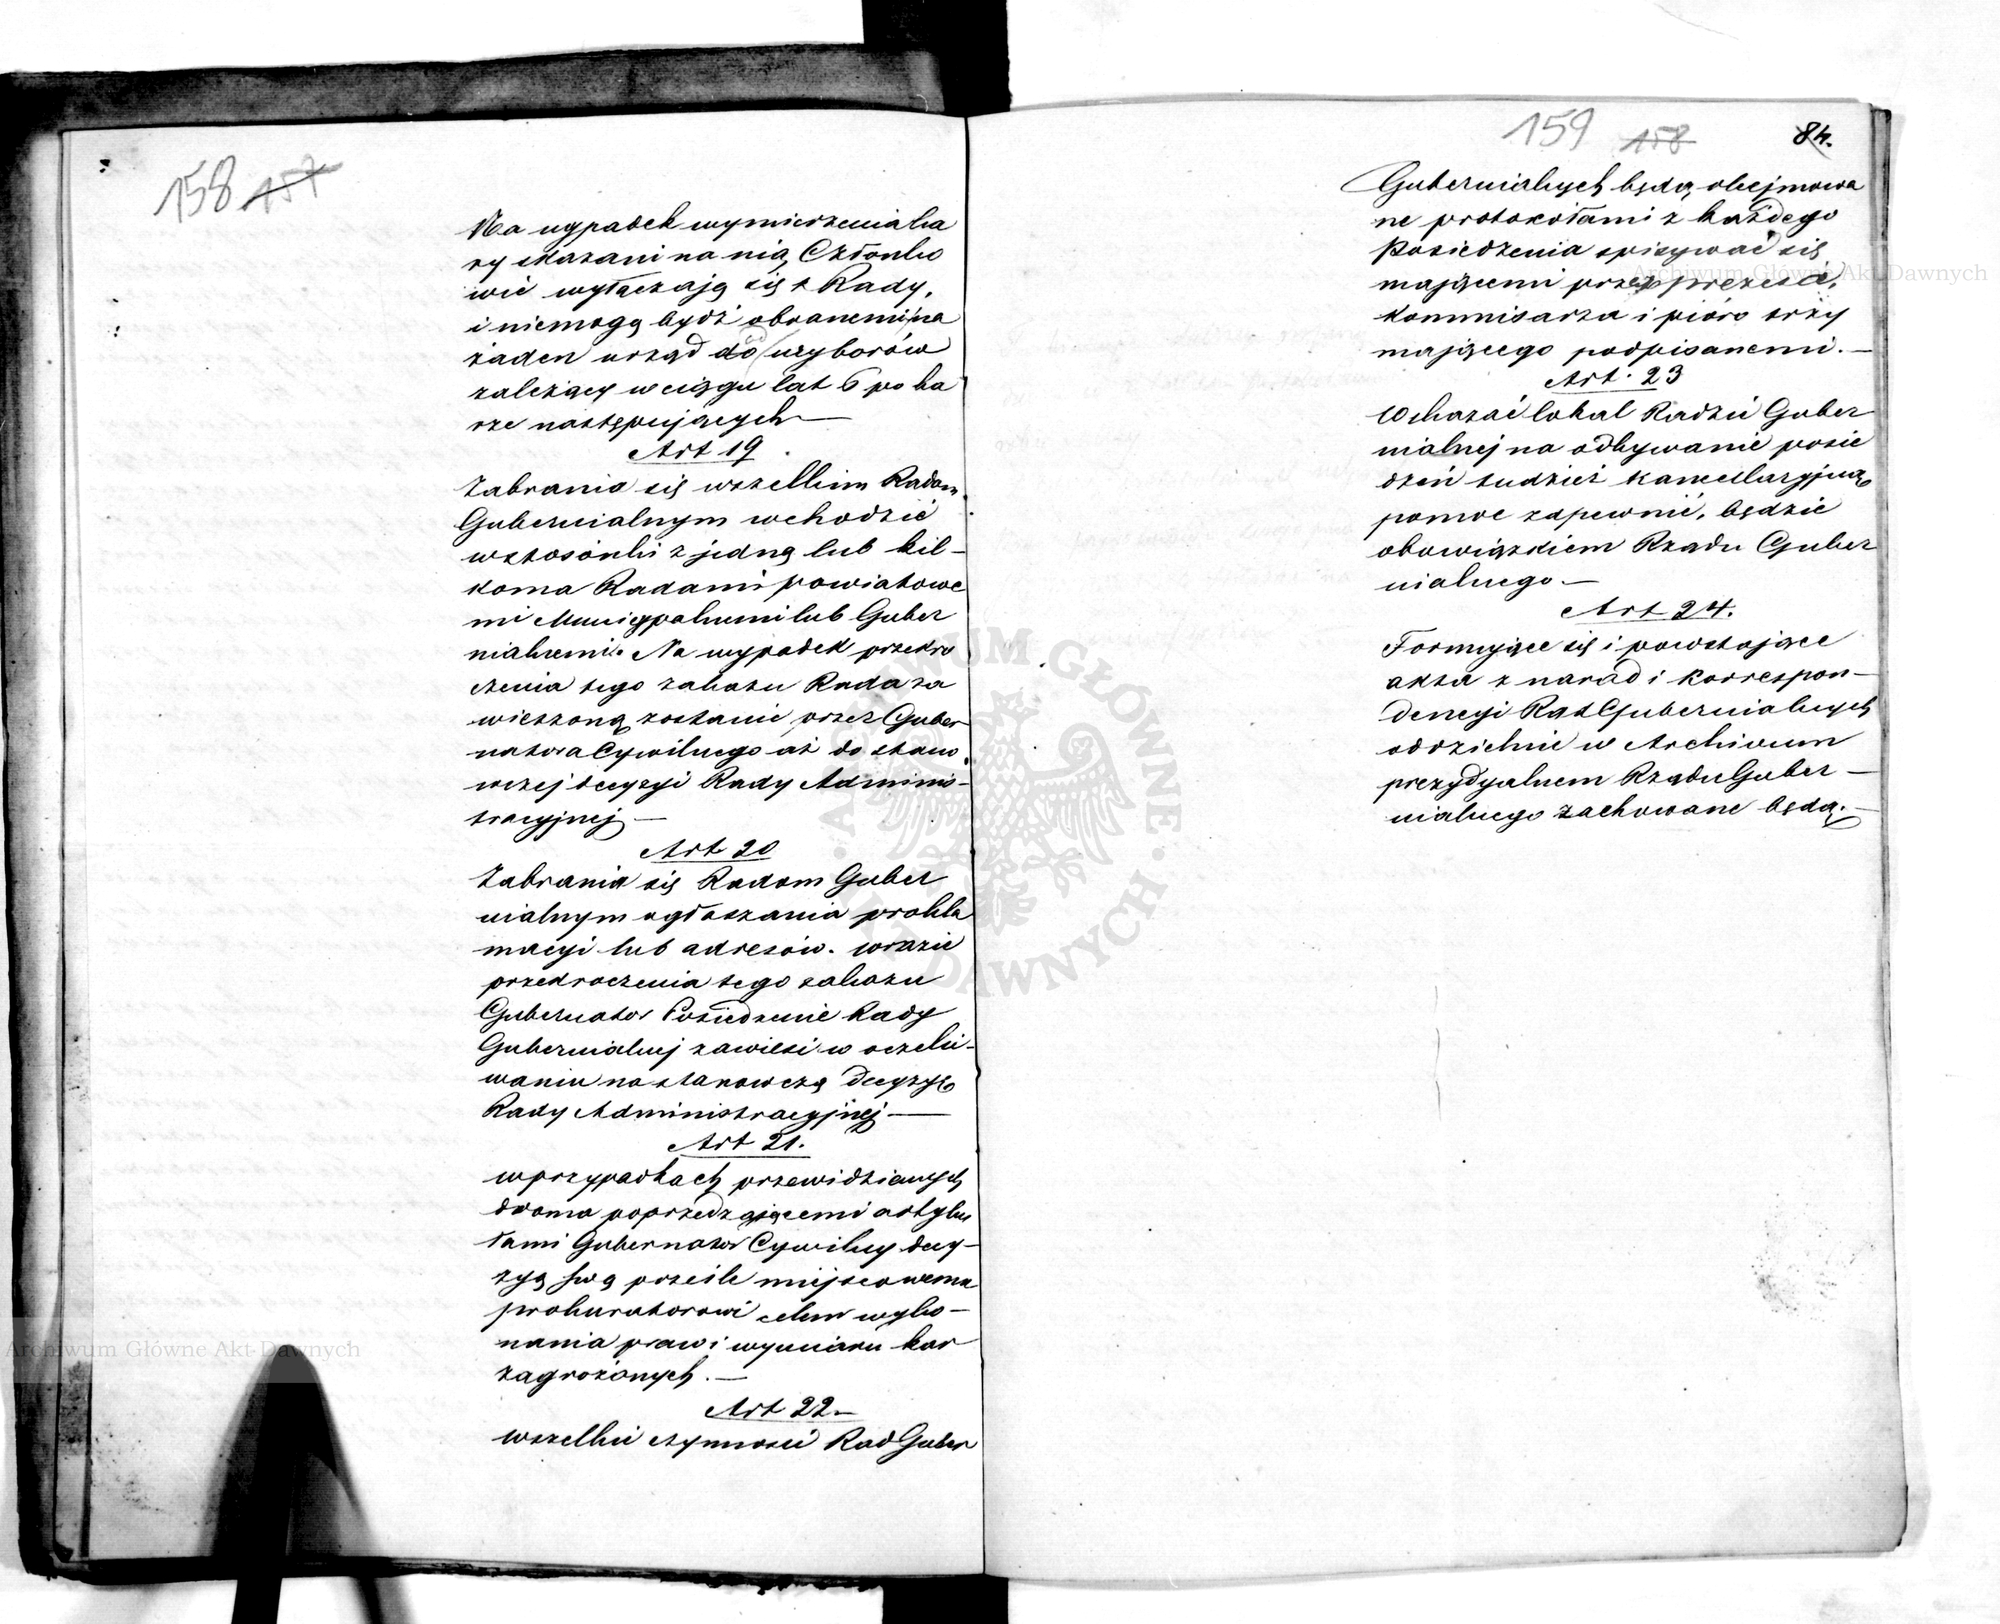 158 157
Na wypadek wymierzenia ka
ry skazani na nią Członko
wie wyłączają się z Rady,
i niemogą bydź obranemi na
żaden urząd do wyborów
należący w ciągu lat 6 po ka
rze następujących —
Art 19.
Zabrania się wszelkim Radom
Gubernialnym wchodzić
w stosónki z jedną lub kil-
koma Radami powiatowe
mi Municypalnemi lub Guber
nialnemi. Na wypadek przekro
czenia tego zakazu Rada za
wieszoną zostanie przez Guber
natora Cywilnego aż do stano
wczej decyzyi Rady Adminis-
tracyjnej —
Art 20
Zabrania się Radom Guber
nialnym ogłaszania prokla
macyi lub adresów. w razie
przekroczenia tego zakazu
Gubernator Posiedzenie Rady
Gubernialnej zawiesi w oczeki-
waniu na stanowczą decyzyę
Rady Administracyjnej —
Art 21.
w przypadkach przewidzianych
dwoma poprzedzającemi artyku
łami Gubernator Cywilny decy-
zyą swą prześle miejscowemu
prokuratorowi celem wyko-
nania praw i wymiaru kar
zagrożonych. —
Art 22 —
wszelkie czynności Rad Guber
159 158 84.
Gubernialnych będą obejmowa
ne protokołami z każdego
Posiedzenia spisywać się
mającemi przez prezesa,
Kommisarza i pióro trzy
mającego podpisanemi. —
Art. 23
Wskazać lokal Radzie Guber
nialnej na odbywanie posie
dzeń tudzież kancellaryjną
pomoc zapewnić, będzie
obowiązkiem Rządu Guber
nialnego —
Art 24.
Formujące się i powstające
akta z narad i korrespon-
dencyi Rad Gubernialnych
oddzielnie w Archiwum
prezydyalnem Rządu Guber —
nialnego zachowane będą. —
Archiwum Główne Akt Dawnych
Archiwum Główne Akt Dawnych
ARCHIWUM GŁÓWNE AKT DAWNYCH